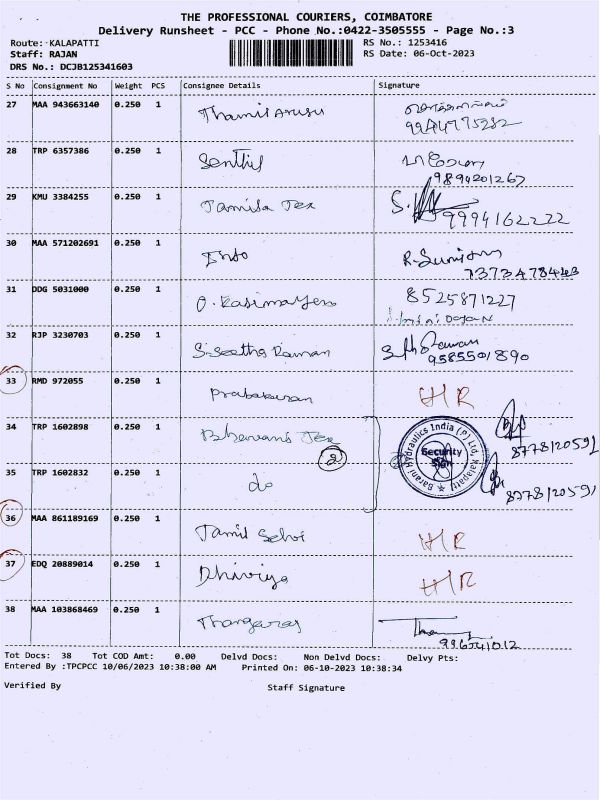 THE PROFESSIONAL COURIERS, COIMBATORE
Delivery Runsheet - PCC - Phone No.:0422-3505555 - Page No.:3
Route: KALAPATTI
Staff: RAJAN
DRS No.: DCJB125341603
RS No.: 1253416
RS Date: 06-Oct-2023
S No Consignment No Weight PCS Consignee Details Signature
27 MAA 943663140 0.250 1 Thamil Arusu
28 TRP 6357386 0.250 1 Senthil
9894201267
29 KMU 3384255 0.250 1 Tamila Tex 9994162222
30 MAA 571202691 0.250 1 Info
7373478443
31 DDG 5031000 0.250 1 8525871227
32 RJP 3230703 0.250 1 S. Seetha Raman
9585501890
33 RMD 972055 0.250 1 Prabakaran H/R
34 TRP 1602898 0.250 1 Bhavani Tex
2
8778120591
Barani Hydraulics India (P) Ltd, Kalapatti
Security
Sign
35 TRP 1602832 0.250 1 do
8778120591
36 MAA 861189169 0.250 1 Tamil Selvi H/R
37 EDQ 20889014 0.250 1 Dhiviya H/R
38 MAA 103868469 0.250 1 Thangaraj
Tot Docs: 38 Tot COD Amt: 0.00 Delvd Docs: Non Delvd Docs: Delvy Pts:
Entered By :TPCPCC 10/06/2023 10:38:00 AM Printed On: 06-10-2023 10:38:34
Verified By Staff Signature